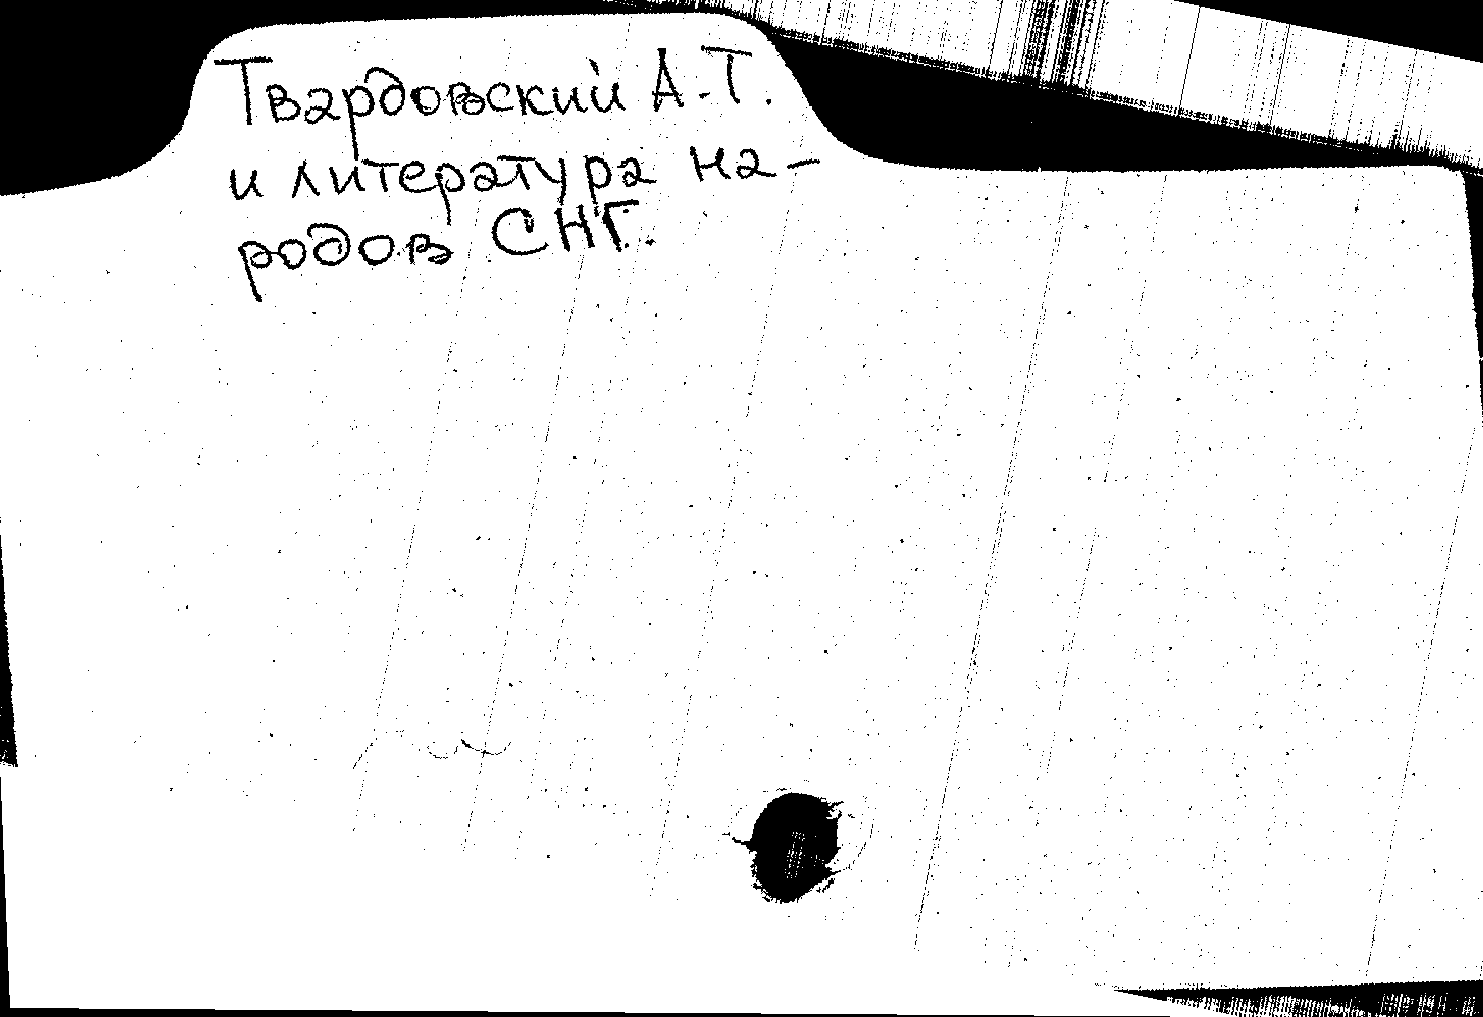 Твардовский А.Т.
и литература на-
родов СНГ.